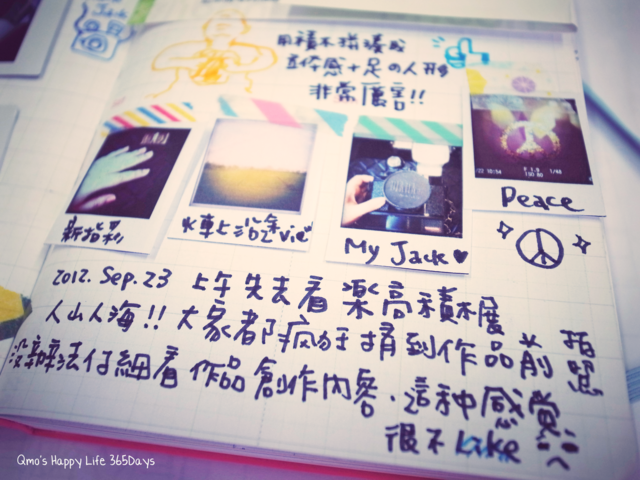 Jack
用積木搭擡成
立体感十足の人形
非常厲害!!
22 10:54 F 1.8 1/40
ISO 80
新指彩
火車上沿途 View
My Jack♥
Peace
2012. Sep. 23 上午先去看 樂高積木展
人山人海!! 大家都瘋狂擠到作品前 拍照
沒辦法仔細看 作品創作內容、這种感覺
很不Like
Qmo's Happy Life 365Days